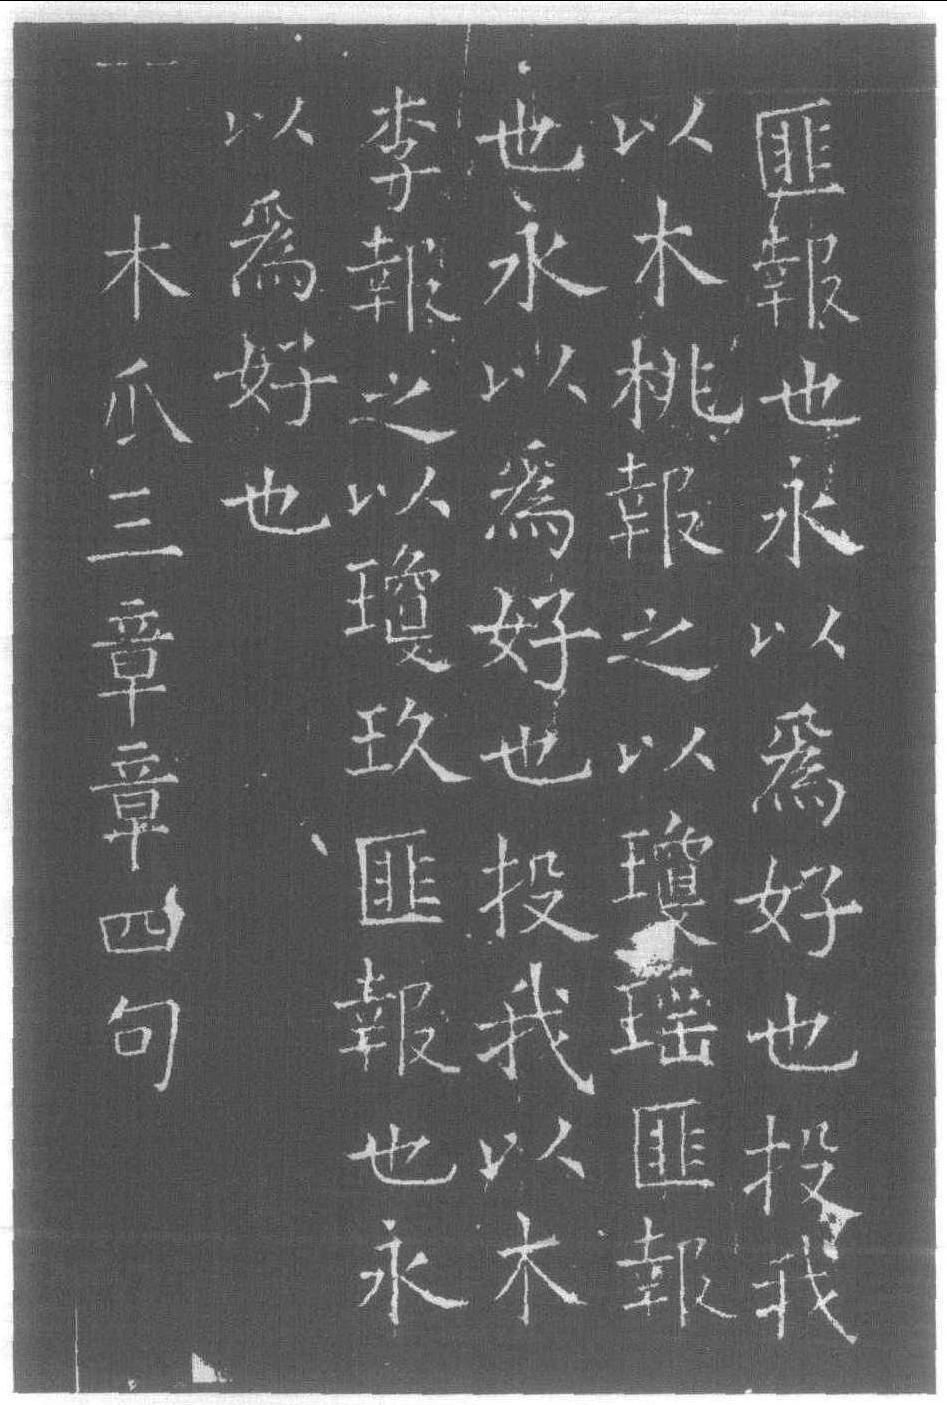 匪報也永以為好也投我
以木桃報之以瓊瑶匪報
也永以為好也投我以木
李報之以瓊玖匪報也永
以為好也
木爪三章章四句